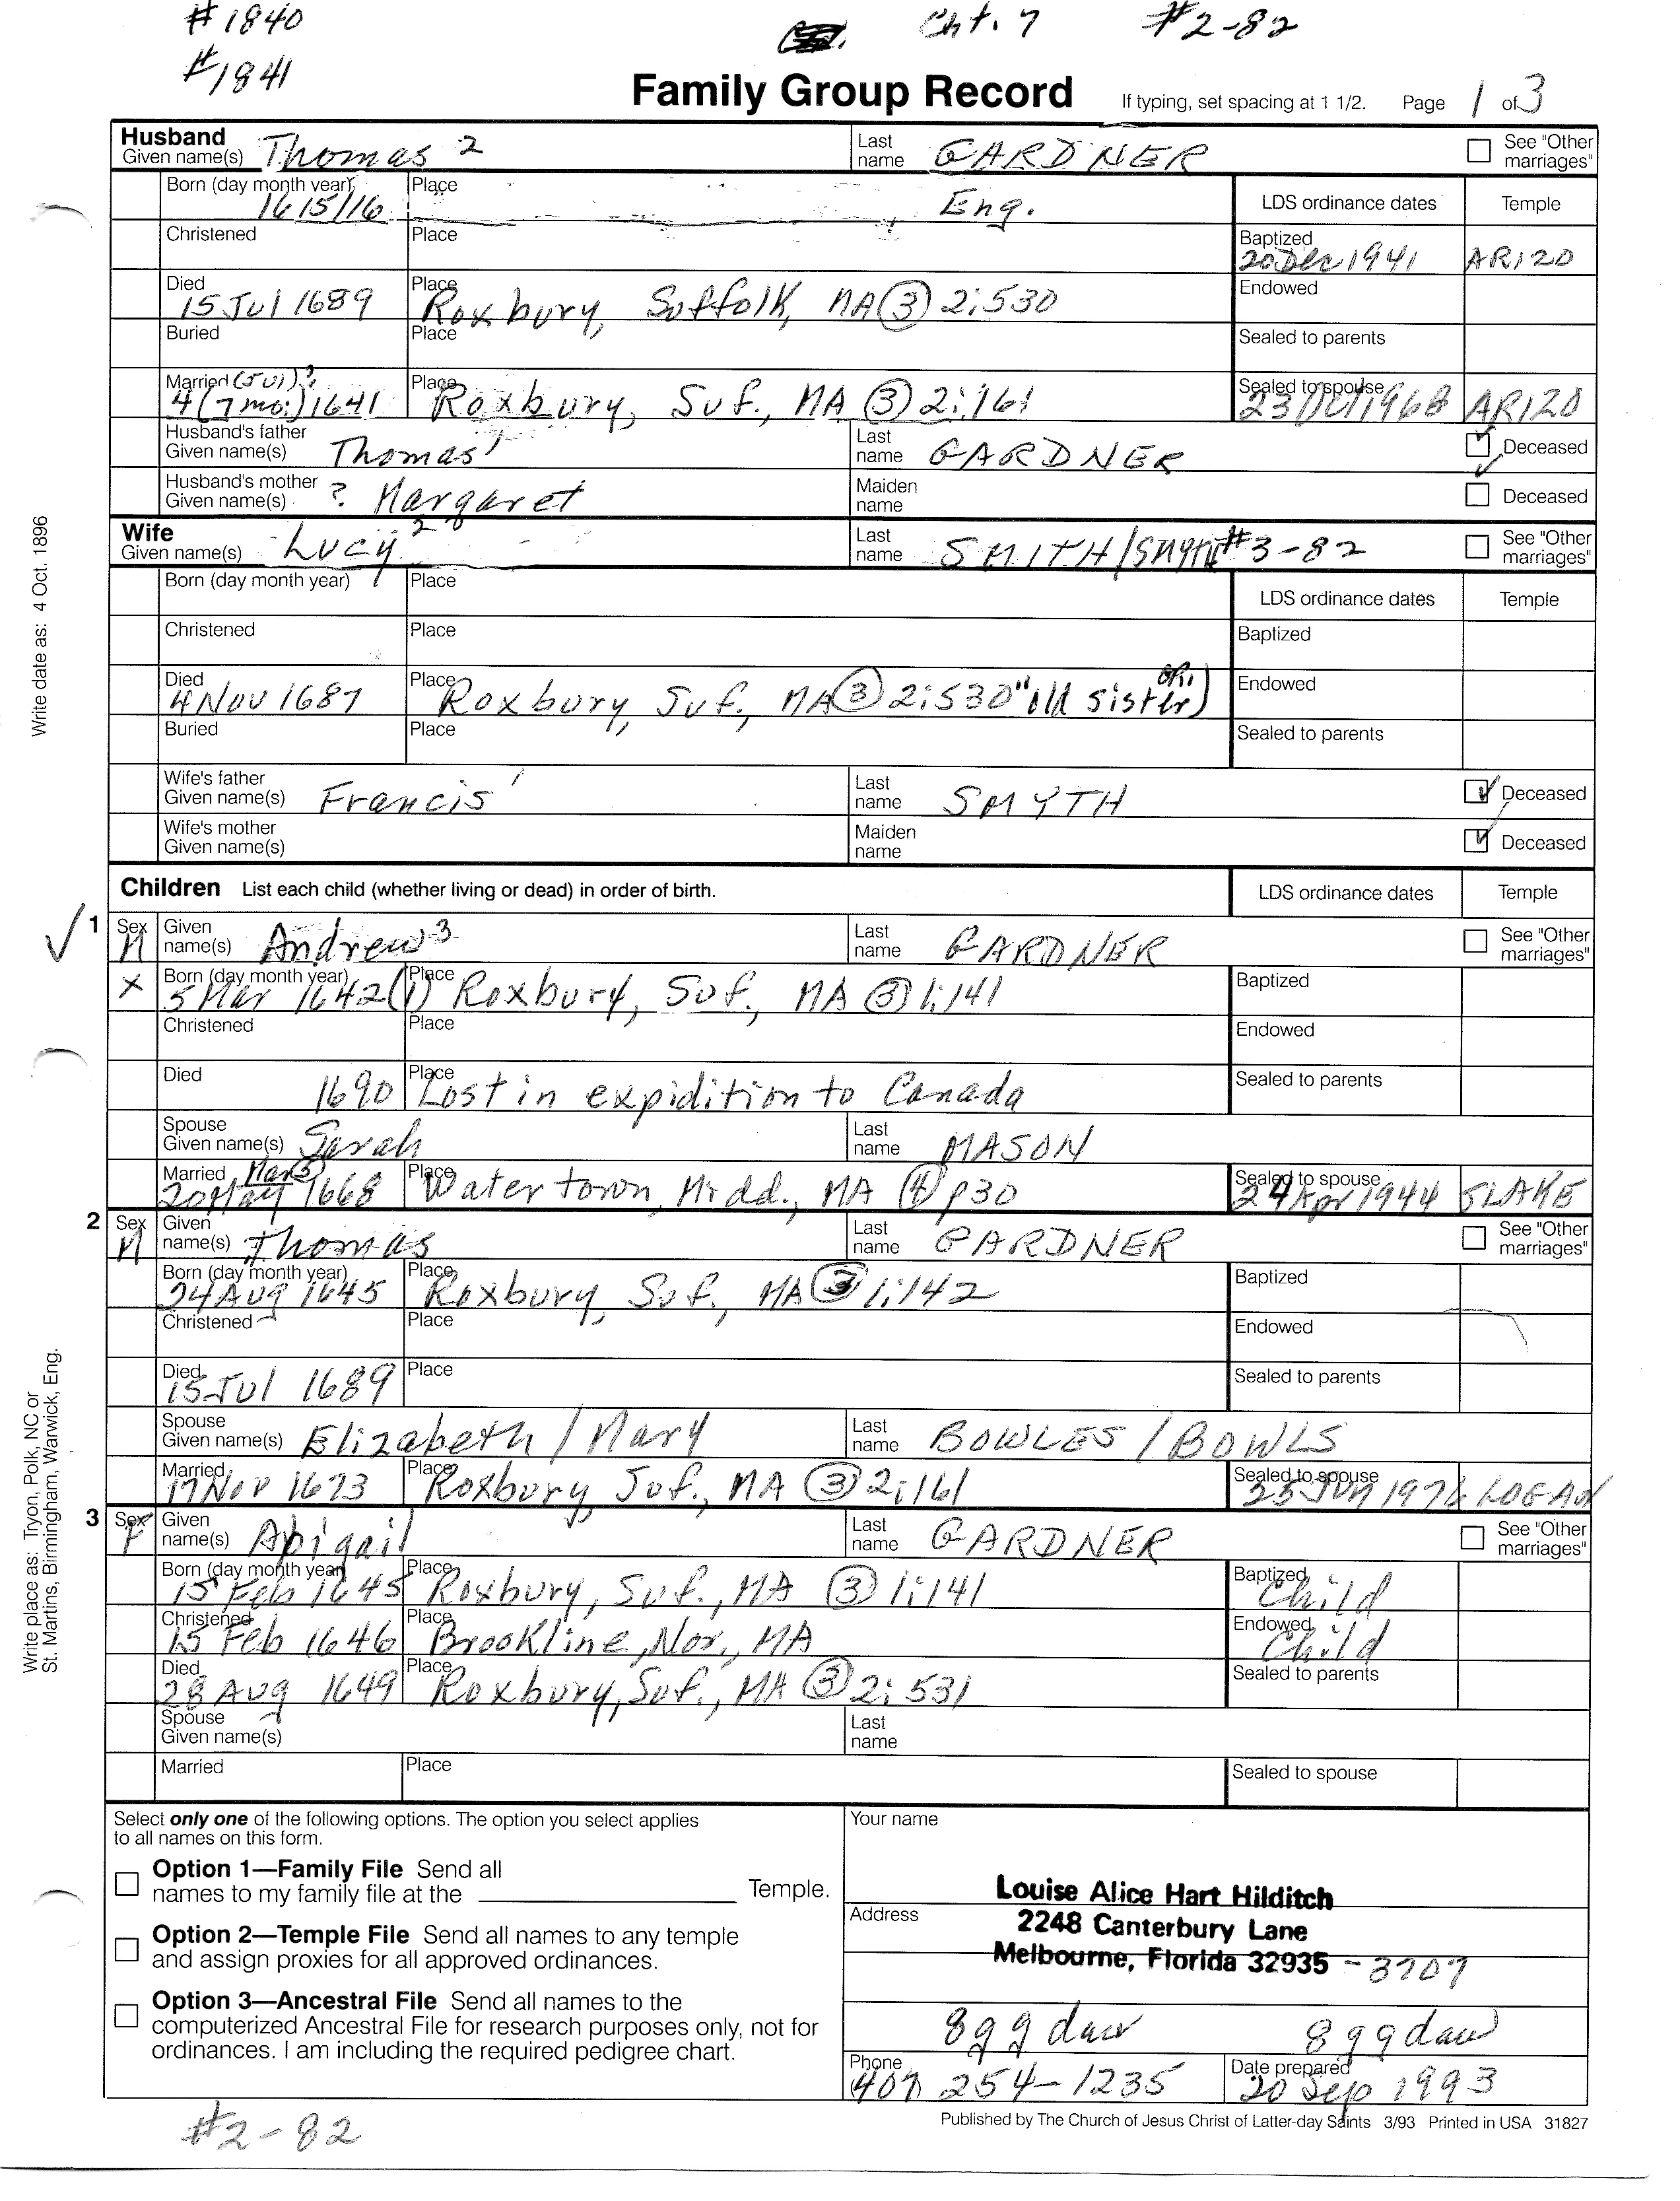 #1840
Cht. 7
#2-82
#1841
Family Group Record If typing, set spacing at 1 1/2. Page 1 of 3
Husband
Given name(s) Thomas 2 Last name GARDNER See "Other marriages"
Born (day month year) 1615/16 Place Eng. LDS ordinance dates Temple
Christened Place Baptized 20 Dec 1941 ARIZO
Died 15 Jul 1689 Place Roxbury, Suffolk, MA (3) 2:530 Endowed
Buried Place Sealed to parents
Married (Jul)? 4 (7mo:) 1641 Place Roxbury, Suf., MA (3) 2:161 Sealed to spouse 1968 ARIZO
Husband's father
Given name(s) Thomas 1 Last name GARDNER Deceased
Husband's mother
Given name(s) ? Margaret Maiden name Deceased
Wife
Given name(s) Lucy 2 Last name SMITH/SMYTH #3-82 See "Other marriages"
Born (day month year) Place LDS ordinance dates Temple
Christened Place Baptized
Died 4 Nov 1687 Place Roxbury, Suf., MA (3) 2:530 "old sister) Endowed
Buried Place Sealed to parents
Wife's father
Given name(s) Francis 1 Last name SMYTH Deceased
Wife's mother
Given name(s) Maiden name Deceased
Children List each child (whether living or dead) in order of birth. LDS ordinance dates Temple
1 Sex M Given name(s) Andrew 3 Last name GARDNER See "Other marriages"
X Born (day month year) 5 Mar 1642 (1) Place Roxbury, Suf., MA (3) 1:141 Baptized
Christened Place Endowed
Died 1690 Place Lost in expidition to Canada Sealed to parents
Spouse
Given name(s) Sarah Last name MASON
Married Mar (3) 20 May 1668 Place Watertown, Midd., MA (4) p30 Sealed to spouse 24 Apr 1944 SLAKE
2 Sex M Given name(s) Thomas Last name GARDNER See "Other marriages"
Born (day month year) 24 Aug 1645 Place Roxbury, Suf., MA (3) 1:142 Baptized
Christened Place Endowed
Died 15 Jul 1689 Place Sealed to parents
Spouse
Given name(s) Elizabeth / Mary Last name BOWLES / BOWLS
Married 17 Nov 1673 Place Roxbury Suf., MA (3) 2:161 Sealed to spouse LOGAN
3 Sex F Given name(s) Abigail Last name GARDNER See "Other marriages"
Born (day month year) 15 Feb 1645 Place Roxbury, Suf., MA (3) 1:141 Baptized Child
Christened 15 Feb 1646 Place Brookline, Nor., MA Endowed Child
Died 28 Aug 1649 Place Roxbury, Suf., MA (3) 2:531 Sealed to parents
Spouse
Given name(s) Last name
Married Place Sealed to spouse
Select only one of the following options. The option you select applies
to all names on this form.
Option 1—Family File Send all
names to my family file at the Temple.
Option 2—Temple File Send all names to any temple
and assign proxies for all approved ordinances.
Option 3—Ancestral File Send all names to the
computerized Ancestral File for research purposes only, not for
ordinances. I am including the required pedigree chart.
Your name
Louise Alice Hart Hilditch
Address
2248 Canterbury Lane
Melbourne, Florida 32935 - 3707
Phone 407 254-1235 Date prepared 20 Sep 1993
Published by The Church of Jesus Christ of Latter-day Saints 3/93 Printed in USA 31827
#2-82
Write date as: 4 Oct. 1896
Write place as: Tryon, Polk, NC or
St. Martins, Birmingham, Warwick, Eng.